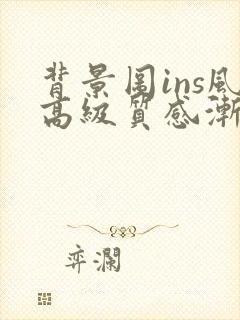 背景图ins风
高级质感渐
弈澜